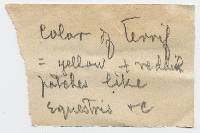 color of Terrif
= yellow + reddish
patches like
equestris &c